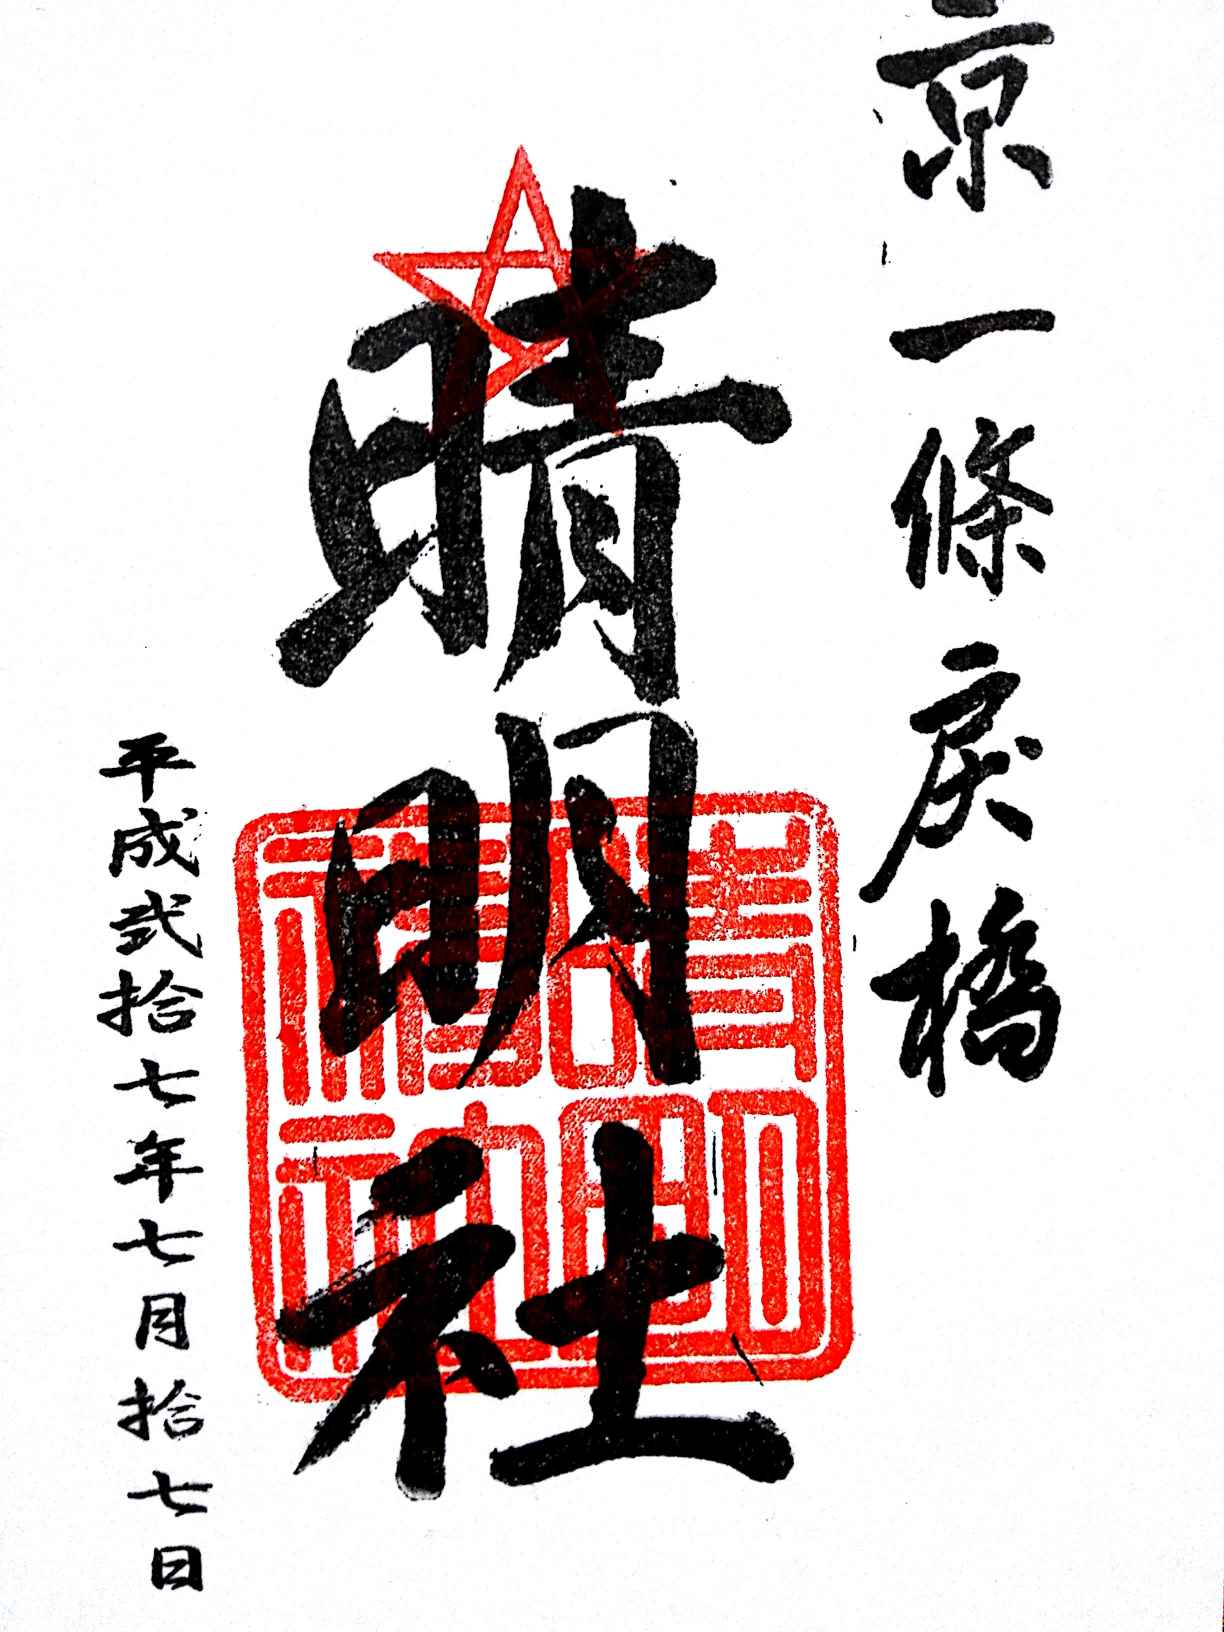 京一條戾橋
晴明社
晴明
神社
平成弐拾七年七月拾七日